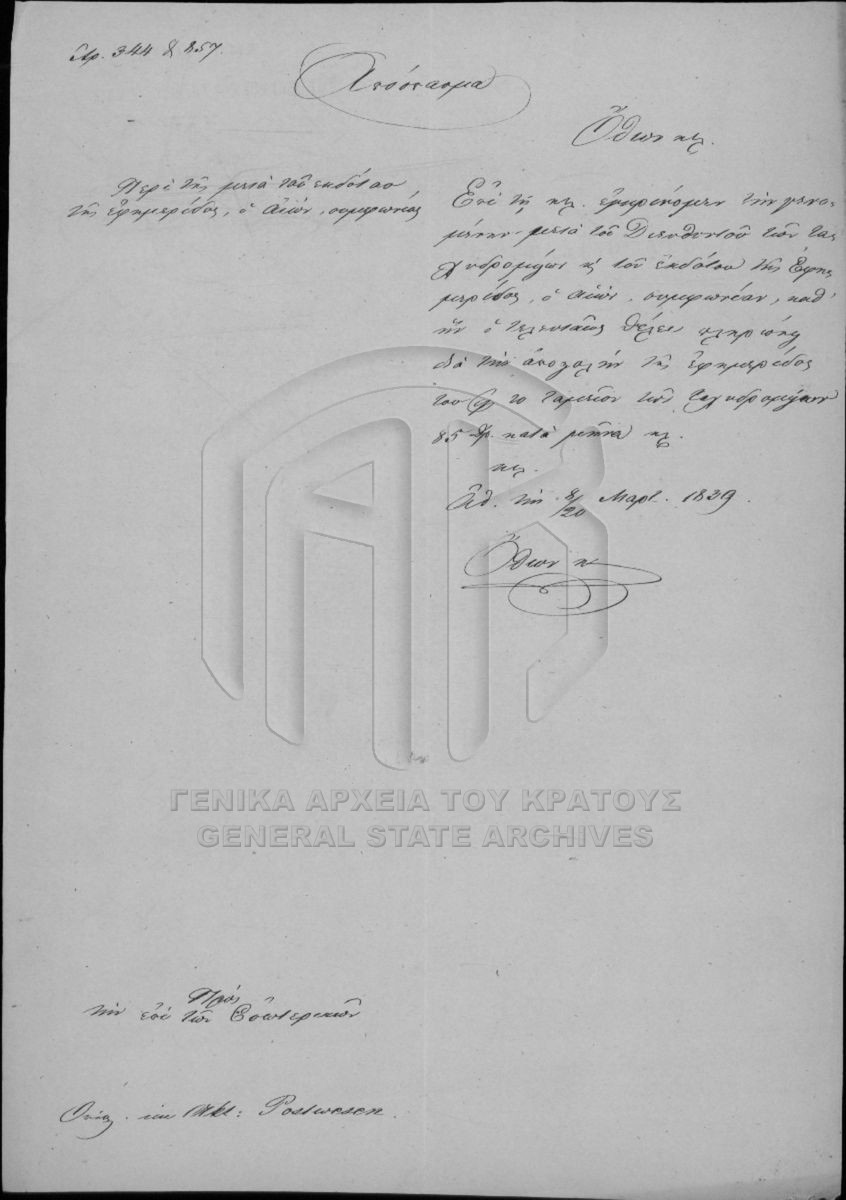 Ἀρ. 344 & 857.
Ἀπόσπασμα
Ὄθων κτλ.
Περὶ τῆς μετὰ τοῦ ἐκδότου
τῆς ἐφημερίδος, ὁ Αἰών, συμφωνίας
Ἐπὶ τῇ κτλ. ἐγκρίνομεν τὴν γενο-
μένην μετὰ τοῦ Διευθυντοῦ τῶν τα-
χυδρομείων κ τοῦ ἐκδότου τῆς Ἐφη-
μερίδος, ὁ Αἰών, συμφωνίαν, καθ'
ἣν ὁ τελευταῖος θέλει πληρώνῃ
διὰ τὴν ἀποστολὴν τῆς ἐφημερίδος
του εἰς τὸ ταμεῖον τῶν ταχυδρομείων
85 Δρ. κατὰ μῆνα κτλ.
κτλ.
Ἀθ. τὴν 8/20 Μαρτ. 1839.
Ὄθων
Πρὸς
τὴν ἐπὶ τῶν Ἐσωτερικῶν
Akt: Postwesen.
ΓΕΝΙΚΑ ΑΡΧΕΙΑ ΤΟΥ ΚΡΑΤΟΥΣ
GENERAL STATE ARCHIVES